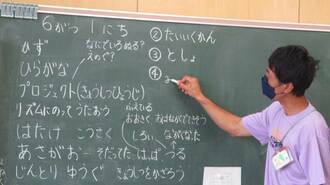 6がつ 1にち
ちず なにでいるぬる？
えのぐ？
ひらがな
プロジェクト(きょうしつひょうじ)
リズムにのって うたおう
はたけ こうさく
あさがお ー そだってた はっぱ つる
じんとり ゆうぐ きょうしつをかざろう
かえている
おおきく おはながでてきそう
しろい、ながくなった
②たいいくかん
③としょ
④